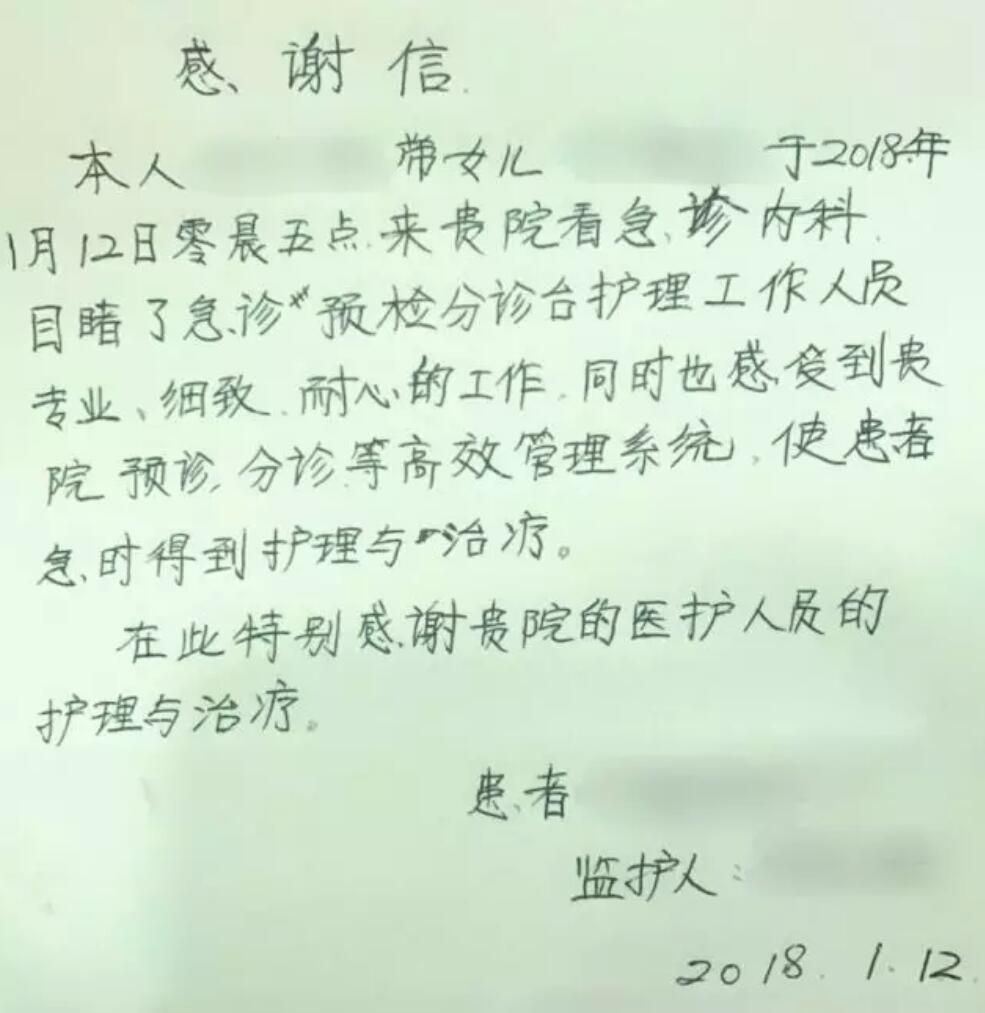 感谢信.
本人 带女儿 于2018年
1月12日零晨五点.来贵院看急诊内科.
目睹了急诊预检分诊台护理工作人员
专业、细致.耐心的工作.同时也感受到贵
院预诊.分诊.等高效管理系统.使患者
急时得到护理与治疗。
在此特别感谢贵院的医护人员的
护理与治疗。
患者
监护人:
2018.1.12.